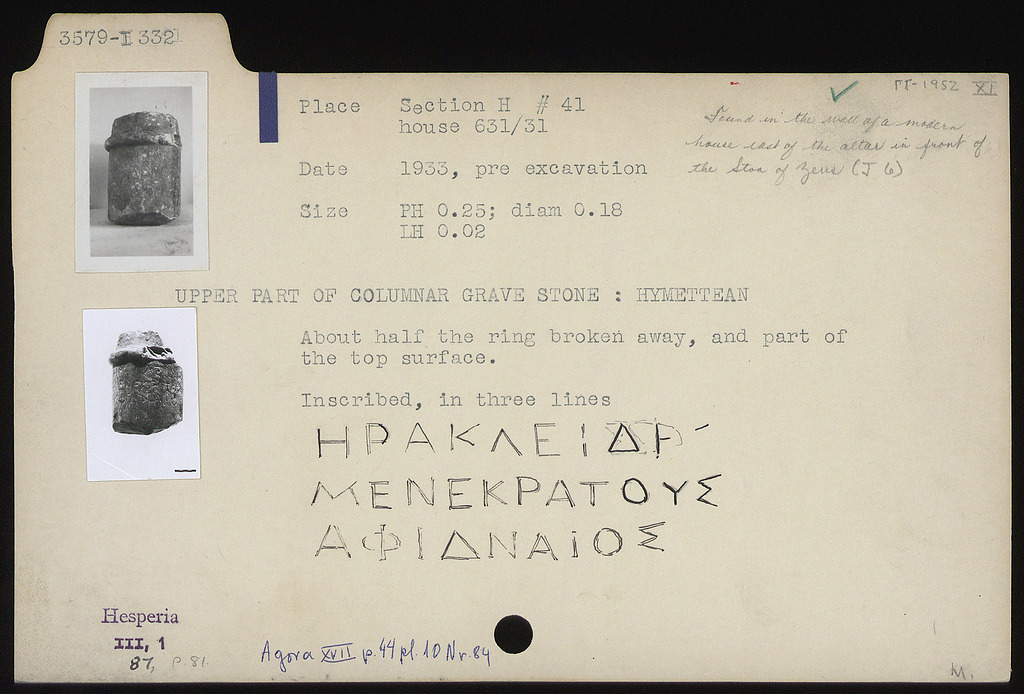 3579-I 332
ΠΓ-1952 XI
Place Section H # 41
house 631/31
Found in the wall of a modern
house east of the altar in front of
the Stoa of Zeus (J 6)
Date 1933, pre excavation
Size PH 0.25; diam 0.18
LH 0.02
UPPER PART OF COLUMNAR GRAVE STONE : HYMETTEAN
About half the ring broken away, and part of
the top surface.
Inscribed, in three lines
ΗΡΑΚΛΕΙΔ
ΜΕΝΕΚΡΑΤΟΥΣ
ΑΦΙΔΝΑΙΟΣ
Hesperia
III, 1
87, p. 81.
Agora XVII p. 44 pl. 10 Nr. 84
M.